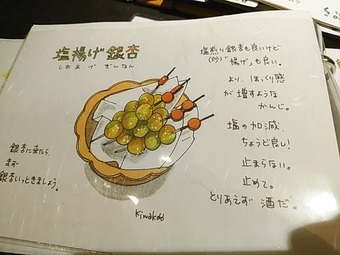 塩揚げ銀杏
しおあげぎんなん
塩煎り銀杏も良いけど
"揚げ"も良い。
より、ほっくり感
が増すような
かんじ。
塩の加減、
ちょうど良い!
止まらない。
止めて。
とりあえず 酒だ。
銀杏に来たら、
まず
銀杏いっときましょう。